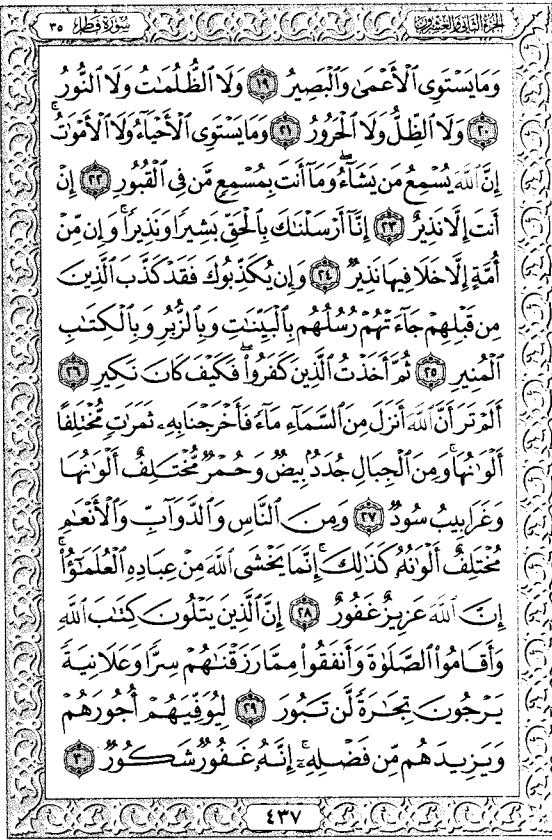 الجزء الثاني والعشرون سورة فاطر ٣٥
وَمَا يَسْتَوِى الْأَعْمَىٰ وَالْبَصِيرُ ١٩ وَلَا الظُّلُمَاتُ وَلَا النُّورُ
٢٠ وَلَا الظِّلُّ وَلَا الْحَرُورُ ٢١ وَمَا يَسْتَوِى الْأَحْيَاءُ وَلَا الْأَمْوَاتُ
إِنَّ اللَّهَ يُسْمِعُ مَن يَشَاءُ وَمَا أَنتَ بِمُسْمِعٍ مَّن فِى الْقُبُورِ ٢٢ إِنْ
أَنتَ إِلَّا نَذِيرٌ ٢٣ إِنَّا أَرْسَلْنَاكَ بِالْحَقِّ بَشِيرًا وَنَذِيرًا وَإِن مِّنْ
أُمَّةٍ إِلَّا خَلَا فِيهَا نَذِيرٌ ٢٤ وَإِن يُكَذِّبُوكَ فَقَدْ كَذَّبَ الَّذِينَ
مِن قَبْلِهِمْ جَاءَتْهُمْ رُسُلُهُم بِالْبَيِّنَاتِ وَبِالزُّبُرِ وَبِالْكِتَابِ
الْمُنِيرِ ٢٥ ثُمَّ أَخَذْتُ الَّذِينَ كَفَرُوا فَكَيْفَ كَانَ نَكِيرِ ٢٦
أَلَمْ تَرَ أَنَّ اللَّهَ أَنزَلَ مِنَ السَّمَاءِ مَاءً فَأَخْرَجْنَا بِهِ ثَمَرَاتٍ مُّخْتَلِفًا
أَلْوَانُهَا وَمِنَ الْجِبَالِ جُدَدٌ بِيضٌ وَحُمْرٌ مُّخْتَلِفٌ أَلْوَانُهَا
وَغَرَابِيبُ سُودٌ ٢٧ وَمِنَ النَّاسِ وَالدَّوَابِّ وَالْأَنْعَامِ
مُخْتَلِفٌ أَلْوَانُهُ كَذَٰلِكَ إِنَّمَا يَخْشَى اللَّهَ مِنْ عِبَادِهِ الْعُلَمَٰؤُا
إِنَّ اللَّهَ عَزِيزٌ غَفُورٌ ٢٨ إِنَّ الَّذِينَ يَتْلُونَ كِتَابَ اللَّهِ
وَأَقَامُوا الصَّلَوٰةَ وَأَنفَقُوا مِمَّا رَزَقْنَاهُمْ سِرًّا وَعَلَانِيَةً
يَرْجُونَ تِجَارَةً لَّن تَبُورَ ٢٩ لِيُوَفِّيَهُمْ أُجُورَهُمْ
وَيَزِيدَهُم مِّن فَضْلِهِ إِنَّهُ غَفُورٌ شَكُورٌ ٣٠
٤٣٧